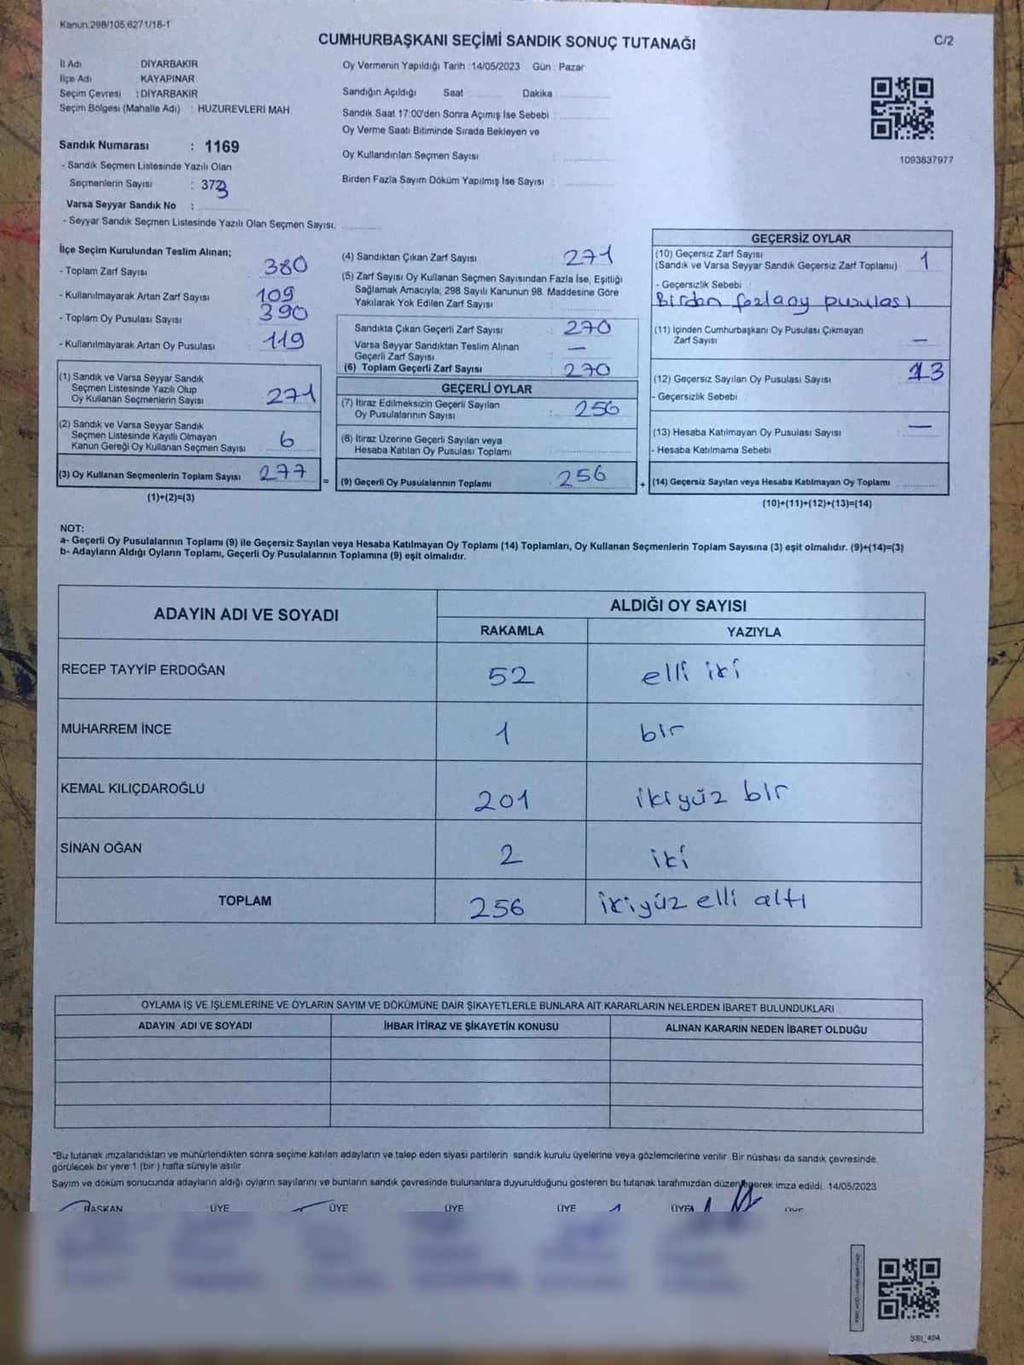 Kanun:298/105,6271/18-1
C/2
CUMHURBAŞKANI SEÇİMİ SANDIK SONUÇ TUTANAĞI
İl Adı DİYARBAKIR
İlçe Adı KAYAPINAR
Seçim Çevresi : DİYARBAKIR
Seçim Bölgesi (Mahalle Adı) HUZUREVLERİ MAH.
Sandık Numarası : 1169
- Sandık Seçmen Listesinde Yazılı Olan
Seçmenlerin Sayısı : 373
Varsa Seyyar Sandık No :
- Seyyar Sandık Seçmen Listesinde Yazılı Olan Seçmen Sayısı.
Oy Vermenin Yapıldığı Tarih :14/05/2023 Gün : Pazar
Sandığın Açıldığı Saat Dakika
Sandık Saat 17:00'den Sonra Açımış İse Sebebi
Oy Verme Saati Bitiminde Sırada Bekleyen ve
Oy Kullandırılan Seçmen Sayısı
Birden Fazla Sayım Döküm Yapılmış İse Sayısı
1093837977
İlçe Seçim Kurulundan Teslim Alınan;
- Toplam Zarf Sayısı 380
- Kullanılmayarak Artan Zarf Sayısı 109
- Toplam Oy Pusulası Sayısı 390
- Kullanılmayarak Artan Oy Pusulası 119
(1) Sandık ve Varsa Seyyar Sandık
Seçmen Listesinde Yazılı Olup
Oy Kullanan Seçmenlerin Sayısı 271
(2) Sandık ve Varsa Seyyar Sandık
Seçmen Listesinde Kayıtlı Olmayan
Kanun Gereği Oy Kullanan Seçmen Sayısı 6
(3) Oy Kullanan Seçmenlerin Toplam Sayısı 277
(1)+(2)=(3)
(4) Sandıktan Çıkan Zarf Sayısı 271
(5) Zarf Sayısı Oy Kullanan Seçmen Sayısından Fazla İse, Eşitliği
Sağlamak Amacıyla, 298 Sayılı Kanunun 98. Maddesine Göre
Yakılarak Yok Edilen Zarf Sayısı
Sandıkta Çıkan Geçerli Zarf Sayısı 270
Varsa Seyyar Sandıktan Teslim Alınan
Geçerli Zarf Sayısı —
(6) Toplam Geçerli Zarf Sayısı 270
GEÇERLİ OYLAR
(7) İtiraz Edilmeksizin Geçerli Sayılan
Oy Pusulalarının Sayısı 256
(8) İtiraz Üzerine Geçerli Sayılan veya
Hesaba Katılan Oy Pusulası Toplamı
= (9) Geçerli Oy Pusulalarının Toplamı 256
GEÇERSİZ OYLAR
(10) Geçersiz Zarf Sayısı
(Sandık ve Varsa Seyyar Sandık Geçersiz Zarf Toplamı) 1
- Geçersizlik Sebebi
Birden fazla oy pusulası
(11) İçinden Cumhurbaşkanı Oy Pusulası Çıkmayan
Zarf Sayısı —
(12) Geçersiz Sayılan Oy Pusulası Sayısı 13
- Geçersizlik Sebebi
(13) Hesaba Katılmayan Oy Pusulası Sayısı —
- Hesaba Katılmama Sebebi
+ (14) Geçersiz Sayılan veya Hesaba Katılmayan Oy Toplamı
(10)+(11)+(12)+(13)=(14)
NOT:
a- Geçerli Oy Pusulalarının Toplamı (9) ile Geçersiz Sayılan veya Hesaba Katılmayan Oy Toplamı (14) Toplamları, Oy Kullanan Seçmenlerin Toplam Sayısına (3) eşit olmalıdır. (9)+(14)=(3)
b- Adayların Aldığı Oyların Toplamı, Geçerli Oy Pusulalarının Toplamına (9) eşit olmalıdır.
ADAYIN ADI VE SOYADI ALDIĞI OY SAYISI
RAKAMLA YAZIYLA
RECEP TAYYİP ERDOĞAN 52 elli iki
MUHARREM İNCE 1 bir
KEMAL KILIÇDAROĞLU 201 ikiyüz bir
SİNAN OĞAN 2 iki
TOPLAM 256 ikiyüz elli altı
OYLAMA İŞ VE İŞLEMLERİNE VE OYLARIN SAYIM VE DÖKÜMÜNE DAİR ŞİKAYETLERLE BUNLARA AİT KARARLARIN NELERDEN İBARET BULUNDUKLARI
ADAYIN ADI VE SOYADI İHBAR İTİRAZ VE ŞİKAYETİN KONUSU ALINAN KARARIN NEDEN İBARET OLDUĞU
*Bu tutanak imzalandıktan ve mühürlendikten sonra seçime katılan adayların ve talep eden siyasi partilerin sandık kurulu üyelerine veya gözlemcilerine verilir. Bir nüshası da sandık çevresinde,
görülecek bir yere 1 (bir ) hafta süreyle asılır.
Sayım ve döküm sonucunda adayların aldığı oyların sayılarını ve bunların sandık çevresinde bulunanlara duyurulduğunu gösteren bu tutanak tarafımızdan düzenlenerek imza edildi. 14/05/2023
BAŞKAN ÜYE ÜYE ÜYE ÜYE ÜYE